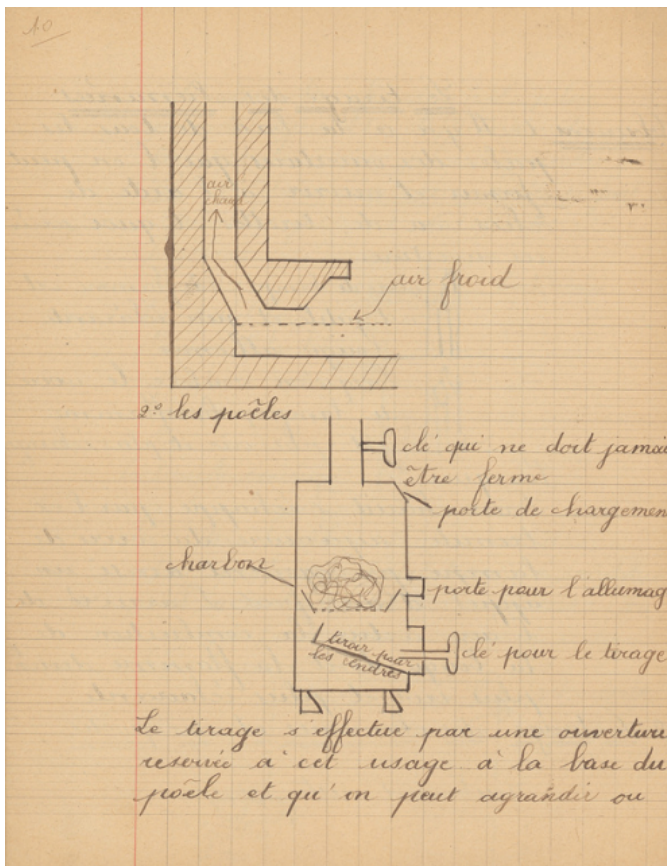 10
air
chaud
air froid
2º les poêles
clé qui ne doit jamai
être ferme
porte de chargemen
charbon
porte pour l'allumag
tiroir pour
les cendres
clé pour le tirage
Le tirage s'effectue par une ouverture
reservée à cet usage à la base du
poêle et qu'on peut agrandir ou